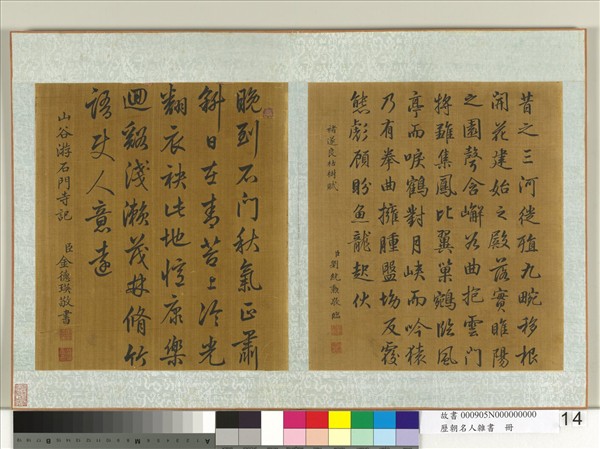 昔之三河徙殖九畹移根
開花建始之殿落實睢陽
之園聲含嶰谷曲抱雲門
將雛集鳳比翼巢鵷臨風
亭而唳鶴對月峽而吟猿
乃有拳曲擁腫盤坳反覆
熊彪顧盼魚龍起伏
褚遂良枯樹賦
臣劉統勳敬臨
晚到石門秋氣正蕭
斜日在青苔上冷光
翻衣袂此地恠康樂
迴谿淺瀨茂林脩竹
語使人意遠
山谷游石門寺記
臣金德瑛敬書
故書 000905N000000000
歷朝名人雜書 冊
14